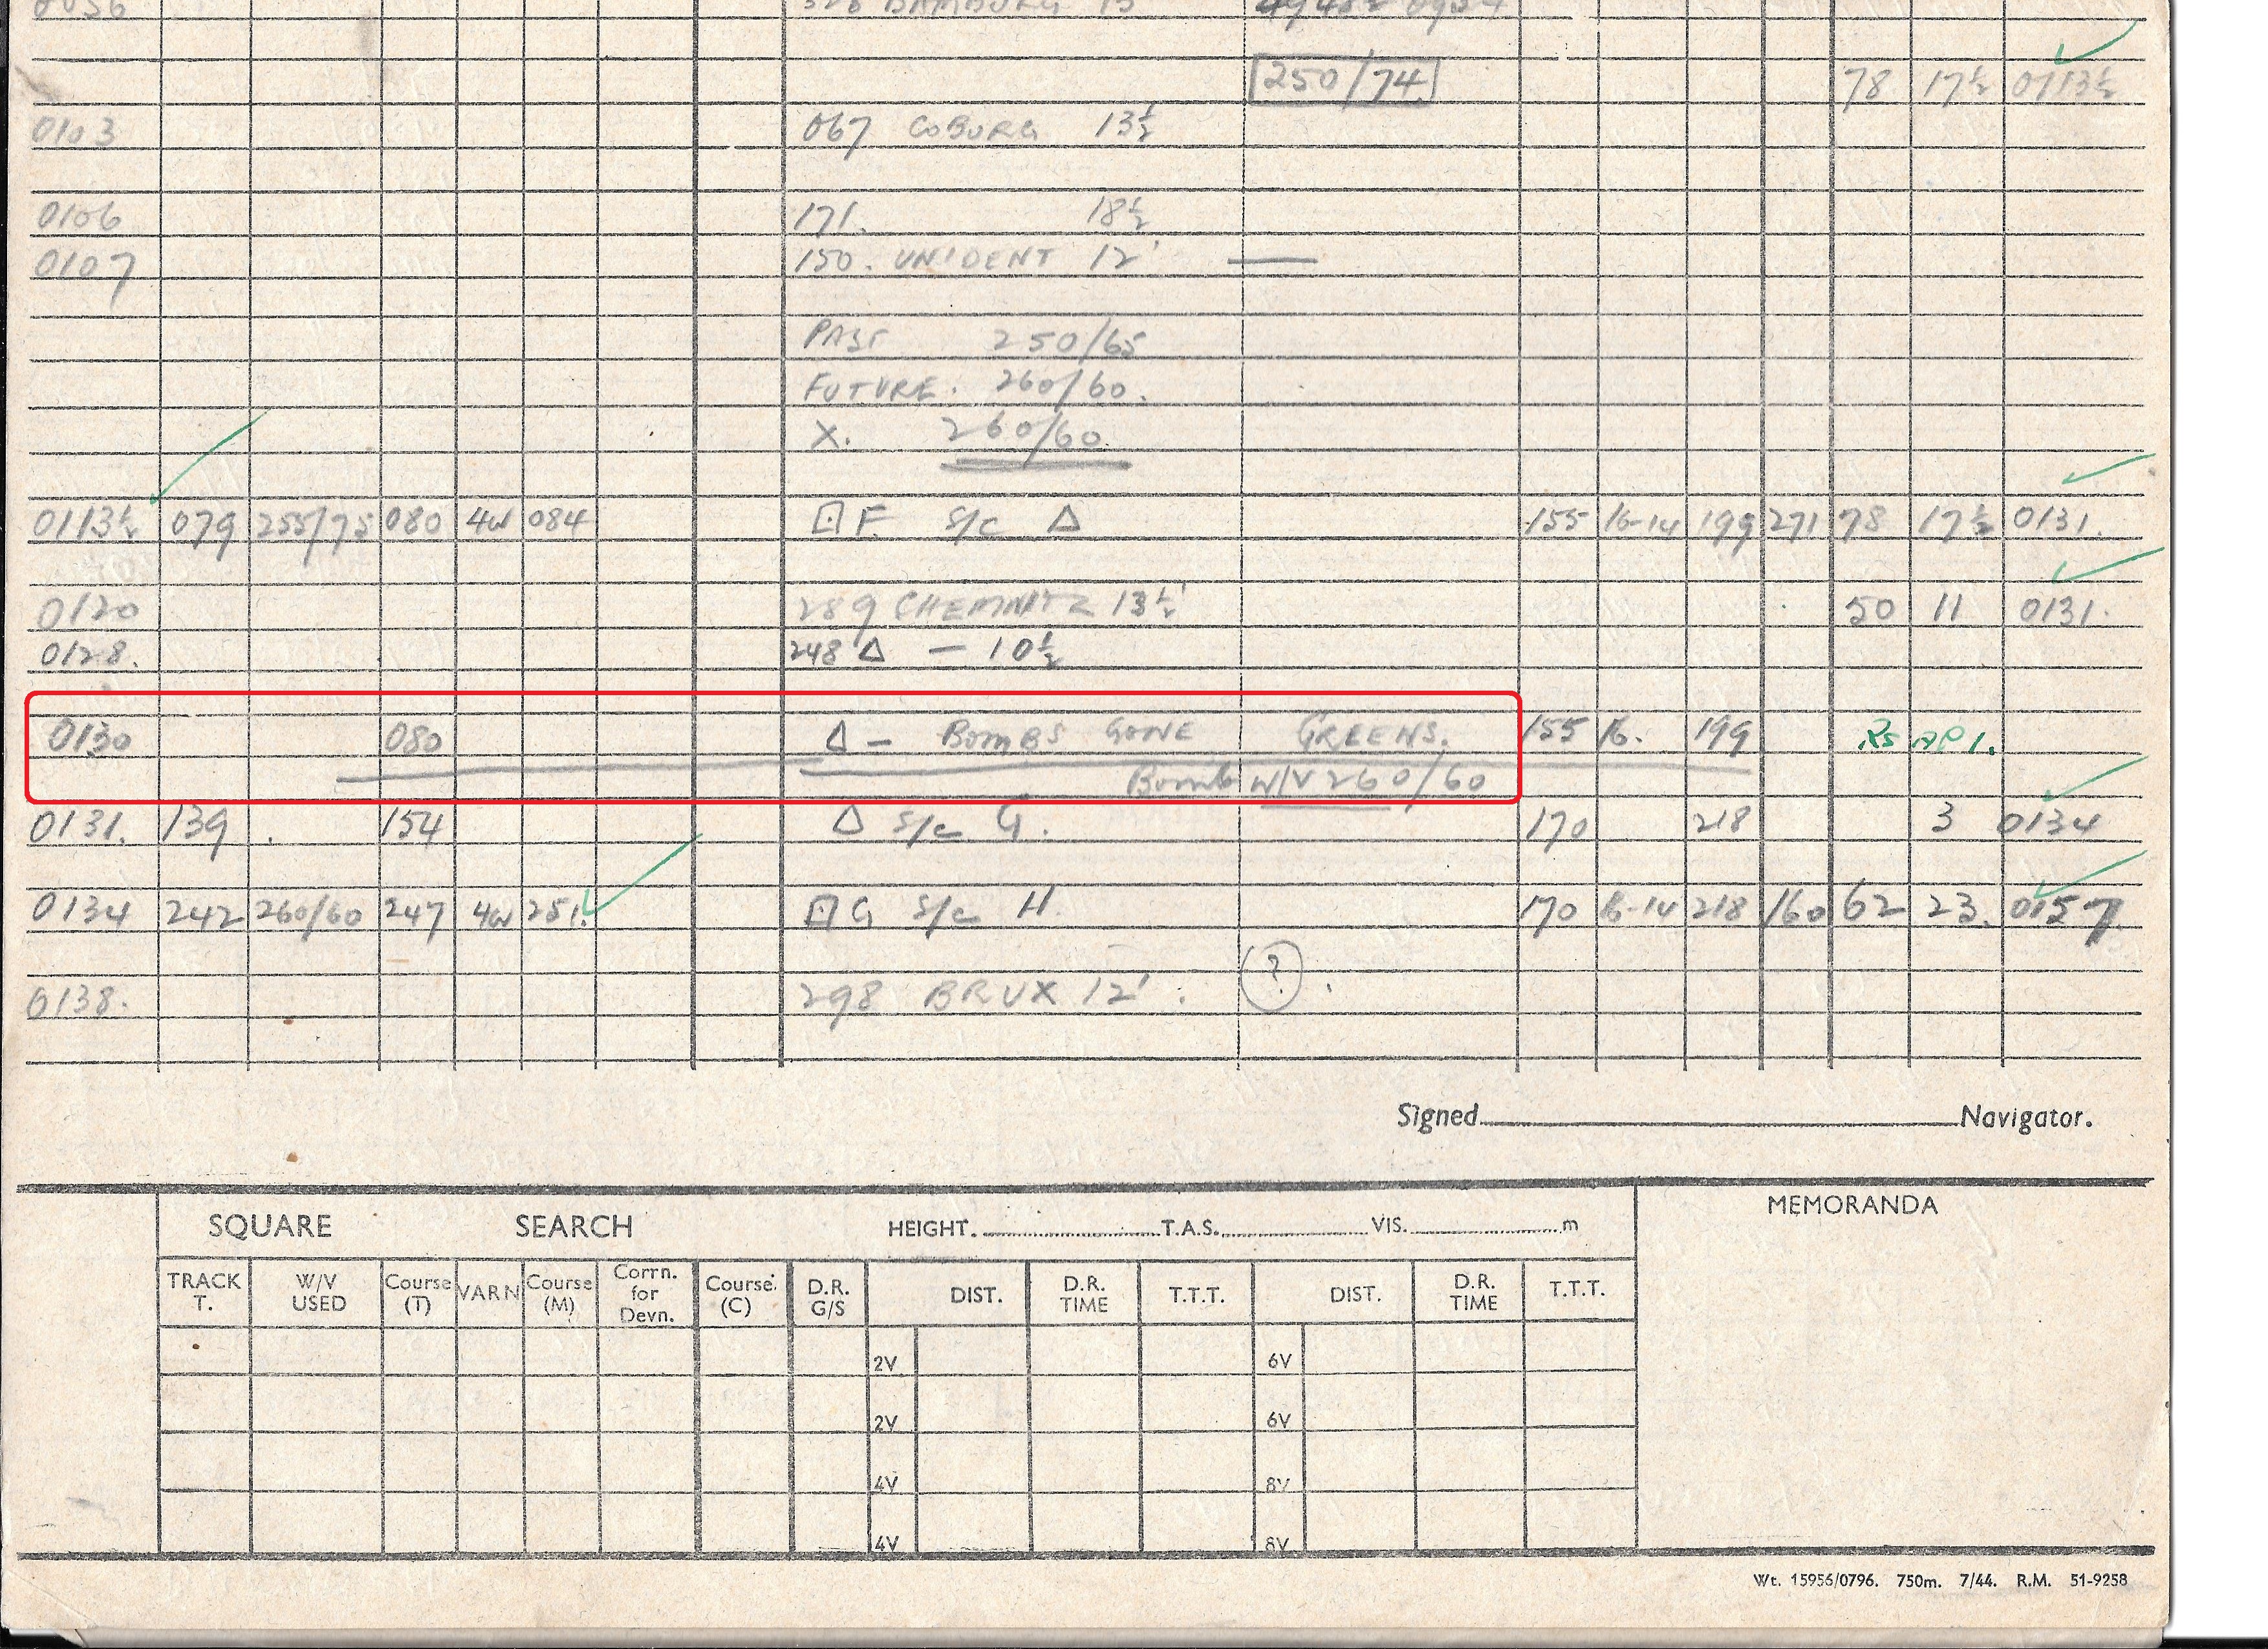 250/74 78 17½ 0113½
0103 067 COBURG 13½
0106 171. 18½
0107 150. UNIDENT 12'
PAST 250/65
FUTURE. 260/60.
X. 260/60.
0113½ 079 255/75 080 4W 084 F. S/C Δ 155 16-14 199 271 78 17½ 0131.
0120 289 CHEMNITZ 13½' 50 11 0131.
0128. 248 Δ — 10½
0130 080 Δ — BOMBS GONE GREENS. 155 16. 199
Bomb W/V 260/60
0131. 139 . 154 Δ S/C G. 170 218 3 0134
0134 242 260/60 247 4W 251. G S/C H. 170 16-14 218 160 62 23. 0157.
0138. 298 BRUX 12'. ?.
Signed Navigator.
SQUARE SEARCH HEIGHT. T.A.S. VIS. m MEMORANDA
TRACK T. W/V USED Course (T) VARN Course (M) Corrn. for Devn. Course. (C) D.R. G/S DIST. D.R. TIME T.T.T. DIST. D.R. TIME T.T.T.
2V 6V
2V 6V
4V 8V
4V 8V
Wt. 15956/0796. 750m. 7/44. R.M. 51-9258